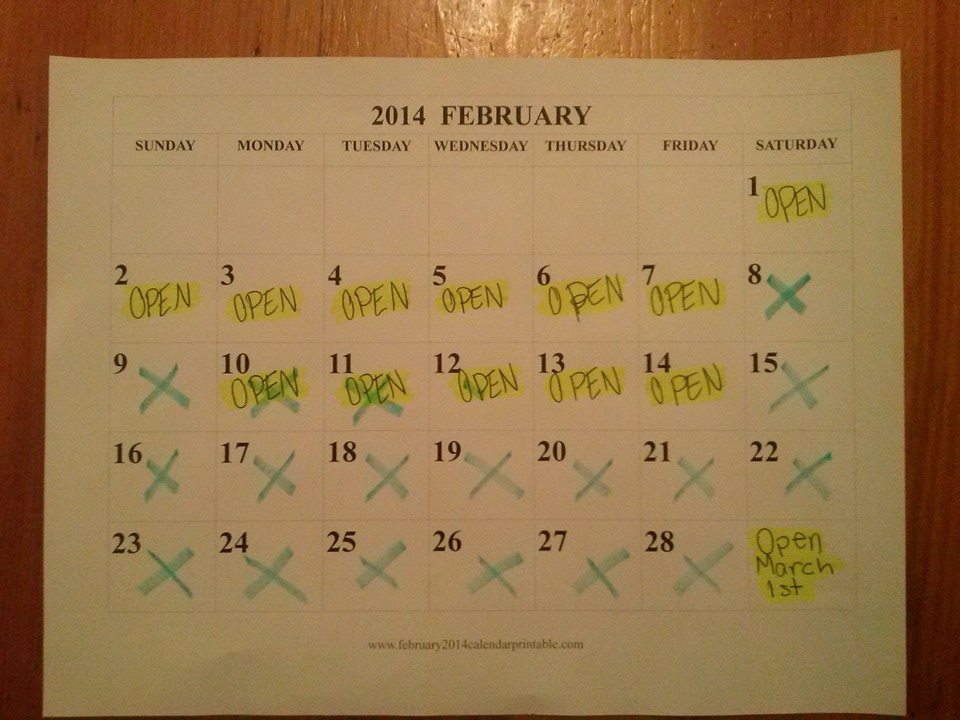 2014 FEBRUARY
SUNDAY MONDAY TUESDAY WEDNESDAY THURSDAY FRIDAY SATURDAY
1 OPEN
2 OPEN 3 OPEN 4 OPEN 5 OPEN 6 OPEN 7 OPEN 8
9 10 OPEN 11 OPEN 12 OPEN 13 OPEN 14 OPEN 15
16 17 18 19 20 21 22
23 24 25 26 27 28 Open
March
1st
www.february2014calendarprintable.com